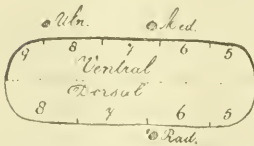 Uln. Med.
9 8 7 6 5
Ventral
Dorsal
8 7 6 5
Rad.